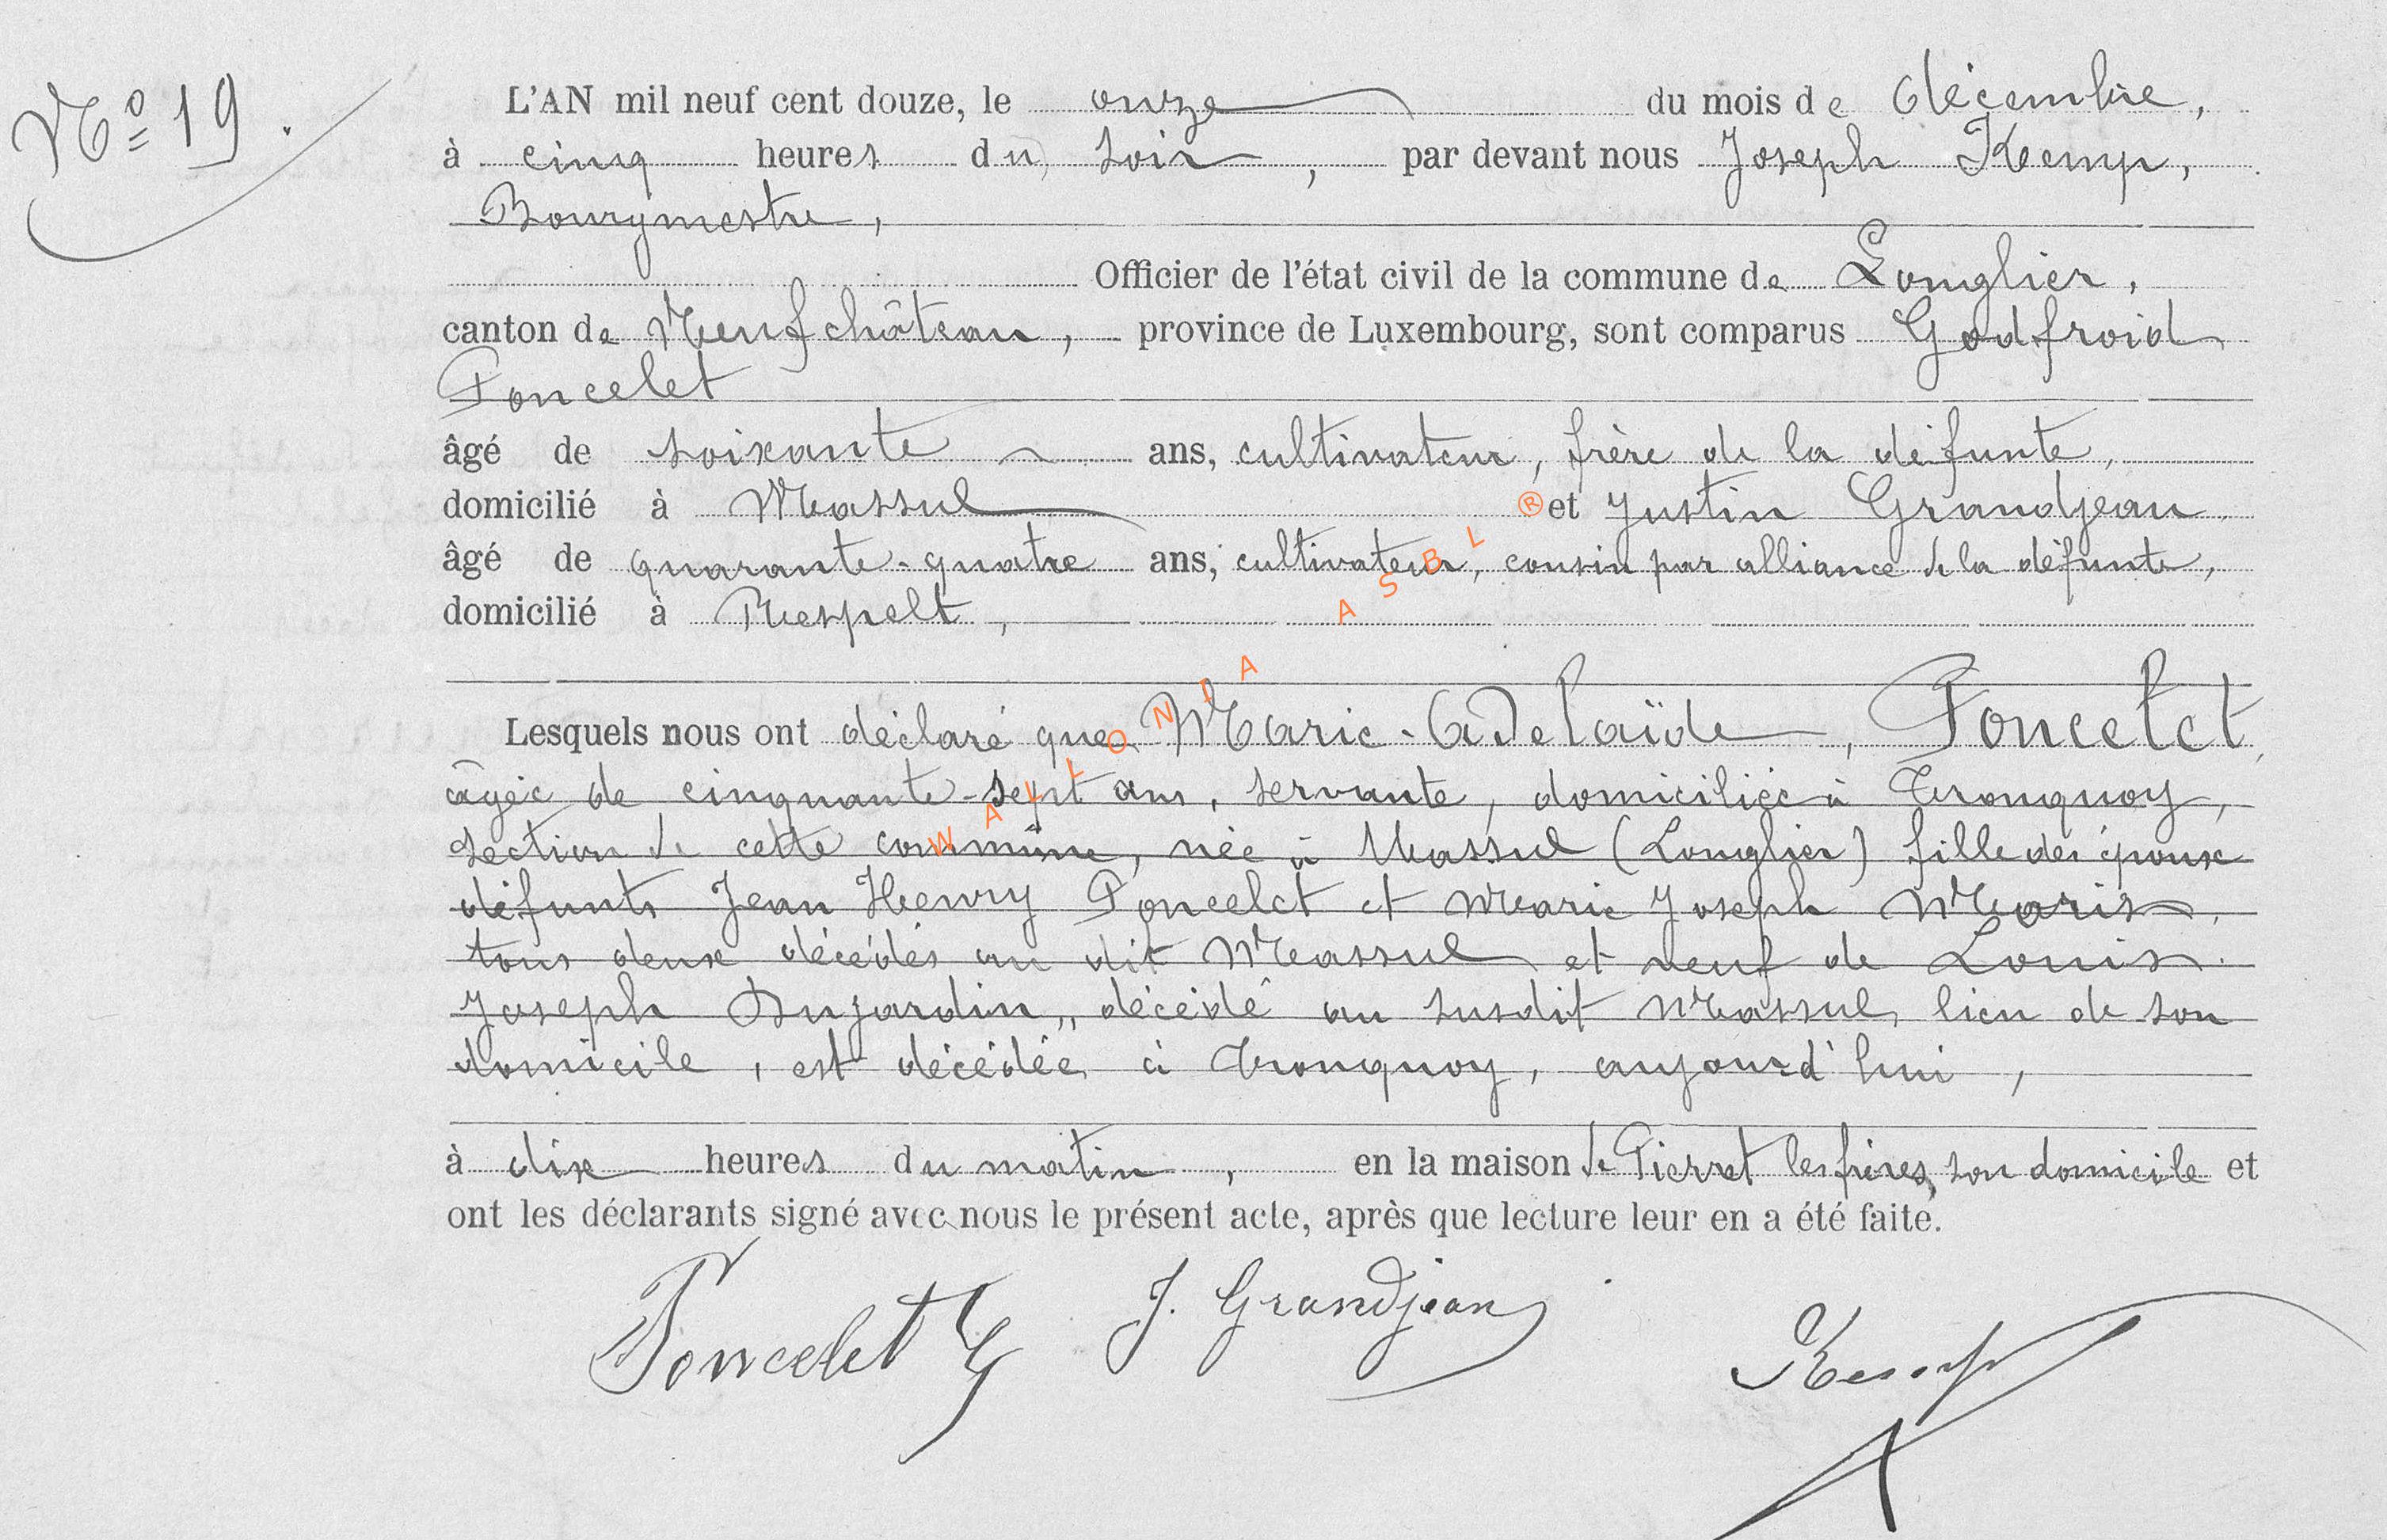 Nº 19.
L'AN mil neuf cent douze, le onze du mois de décembre,
à cinq heures du soir, par devant nous Joseph Kemp,
Bourgmestre,
Officier de l'état civil de la commune de Longlier,
canton de Neufchâteau, province de Luxembourg, sont comparus Godfroid
Poncelet
âgé de soixante ans, cultivateur, frère de la défunte,
domicilié à Massul et Justin Grandjean
âgé de quarante-quatre ans, cultivateur, cousin par alliance de la défunte,
domicilié à Respelt,
Lesquels nous ont déclaré que Marie-Adelaïde, Poncelet,
âgée de cinquante-sept ans, servante, domiciliée à Tronquoy,
section de cette commune, née à Massul (Longlier) fille des époux
défunts Jean Henry Poncelet et Marie Joseph Maris,
tous deux décédés au dit Massul et veuf de Louis
Joseph Dujardin, décédé au susdit Massul, lieu de son
domicile, est décédée à Tronquoy, aujourd'hui,
à dix heures du matin, en la maison de Pierret les frères, son domicile et
ont les déclarants signé avec nous le présent acte, après que lecture leur en a été faite.
Poncelet G J. Grandjean Kemp
WALLONIA ASBL ®